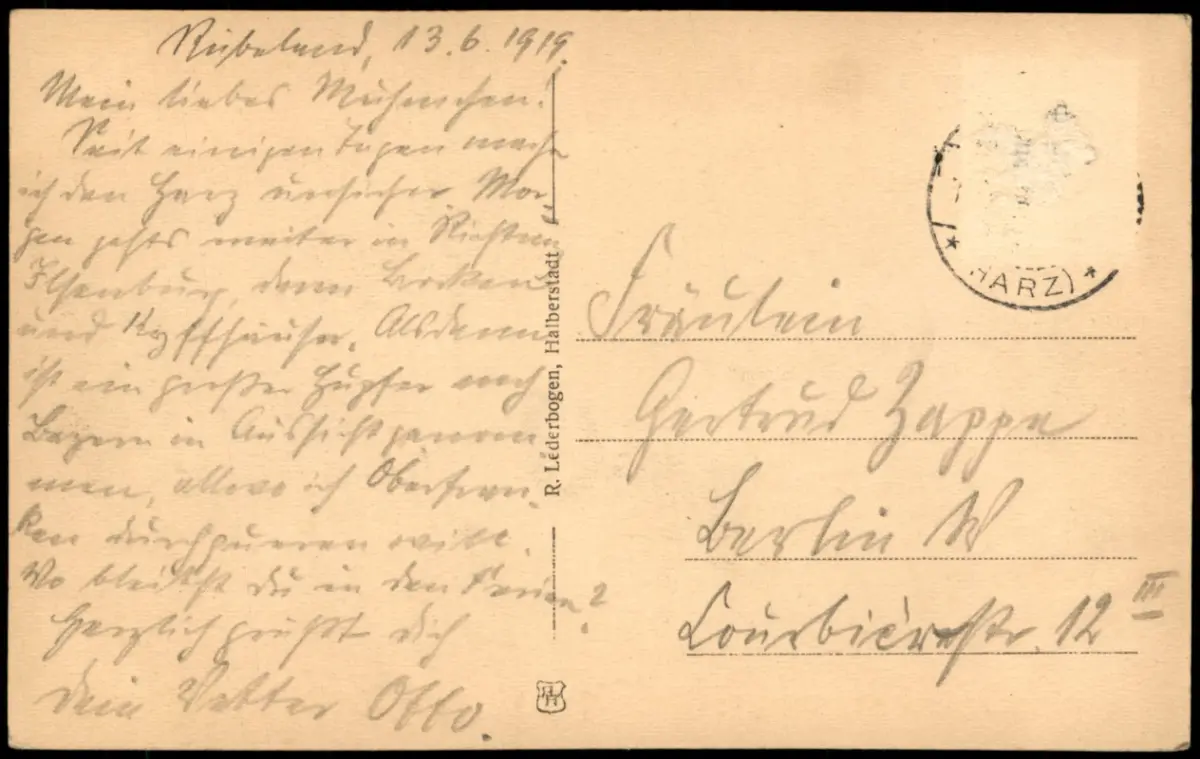 Rübeland, 13.6.1919.
Mein liebes Muhmchen!
Seit einigen Tagen mache
ich den Harz unsicher. Mor-
gen gehts weiter in Richtung
Ilsenburg, dann Brocken
und Kyffhäuser. Alsdann
ist ein großer Hupfer nach
Bayern in Aussicht genom-
men, allwo ich Oberfran-
ken durchqueren will.
Wo bleibst Du in den Ferien?
Herzlich grüßt dich
Dein Vetter Otto.
R. Lederbogen, Halberstadt
(HARZ)
Fräulein
Gertrud Zappe
Berlin W
Courbièrestr. 12 III